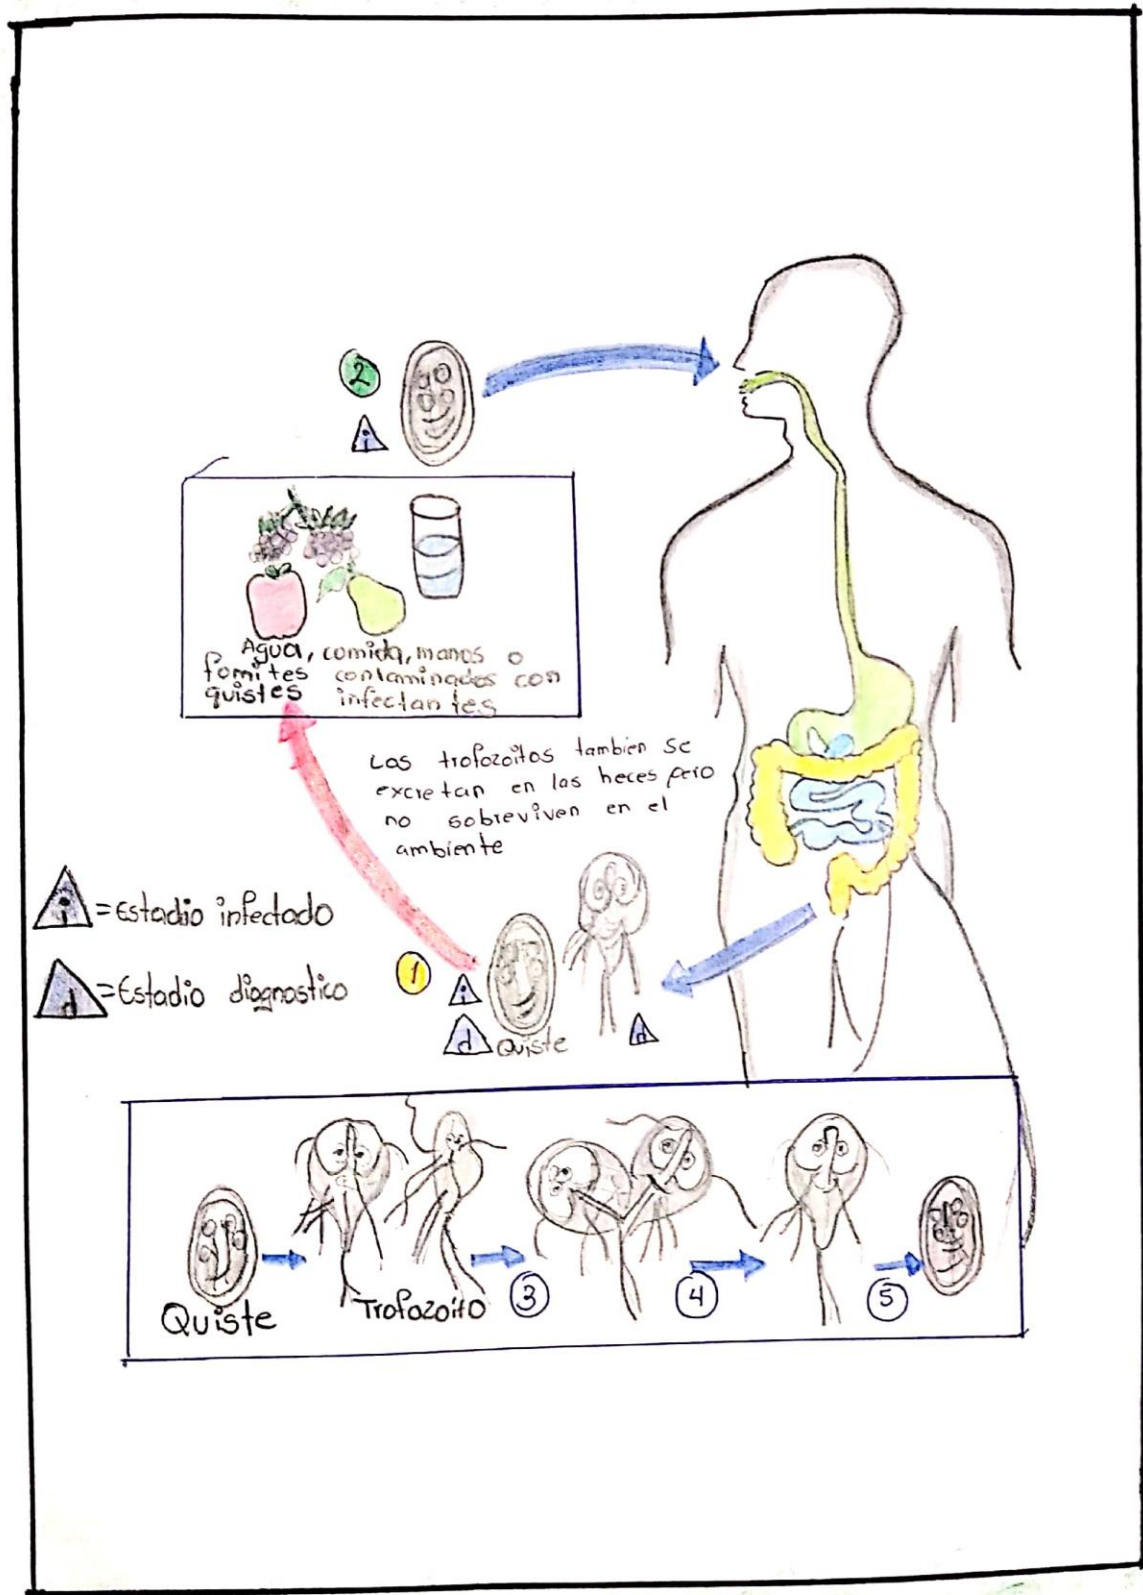 2
i
Agua, comida, manos o
fomites contaminados con
quistes infectantes
Los trofozoitos tambien se
excretan en las heces pero
no sobreviven en el
ambiente
i = Estadio infectado
d = Estadio diagnostico
1
i
d Quiste
d
Quiste
Trofozoito
3
4
5